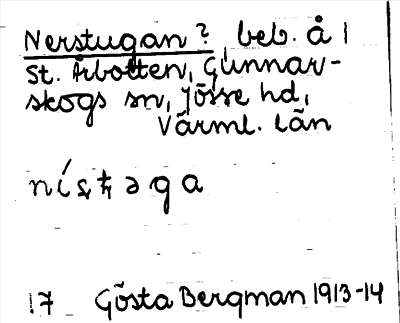 Nerstugan? beb. å 1
St. Årbotten, Gunnar-
skogs sn, Jösse hd,
Värml. län
níʂʈəga
17 Gösta Bergman 1913-14